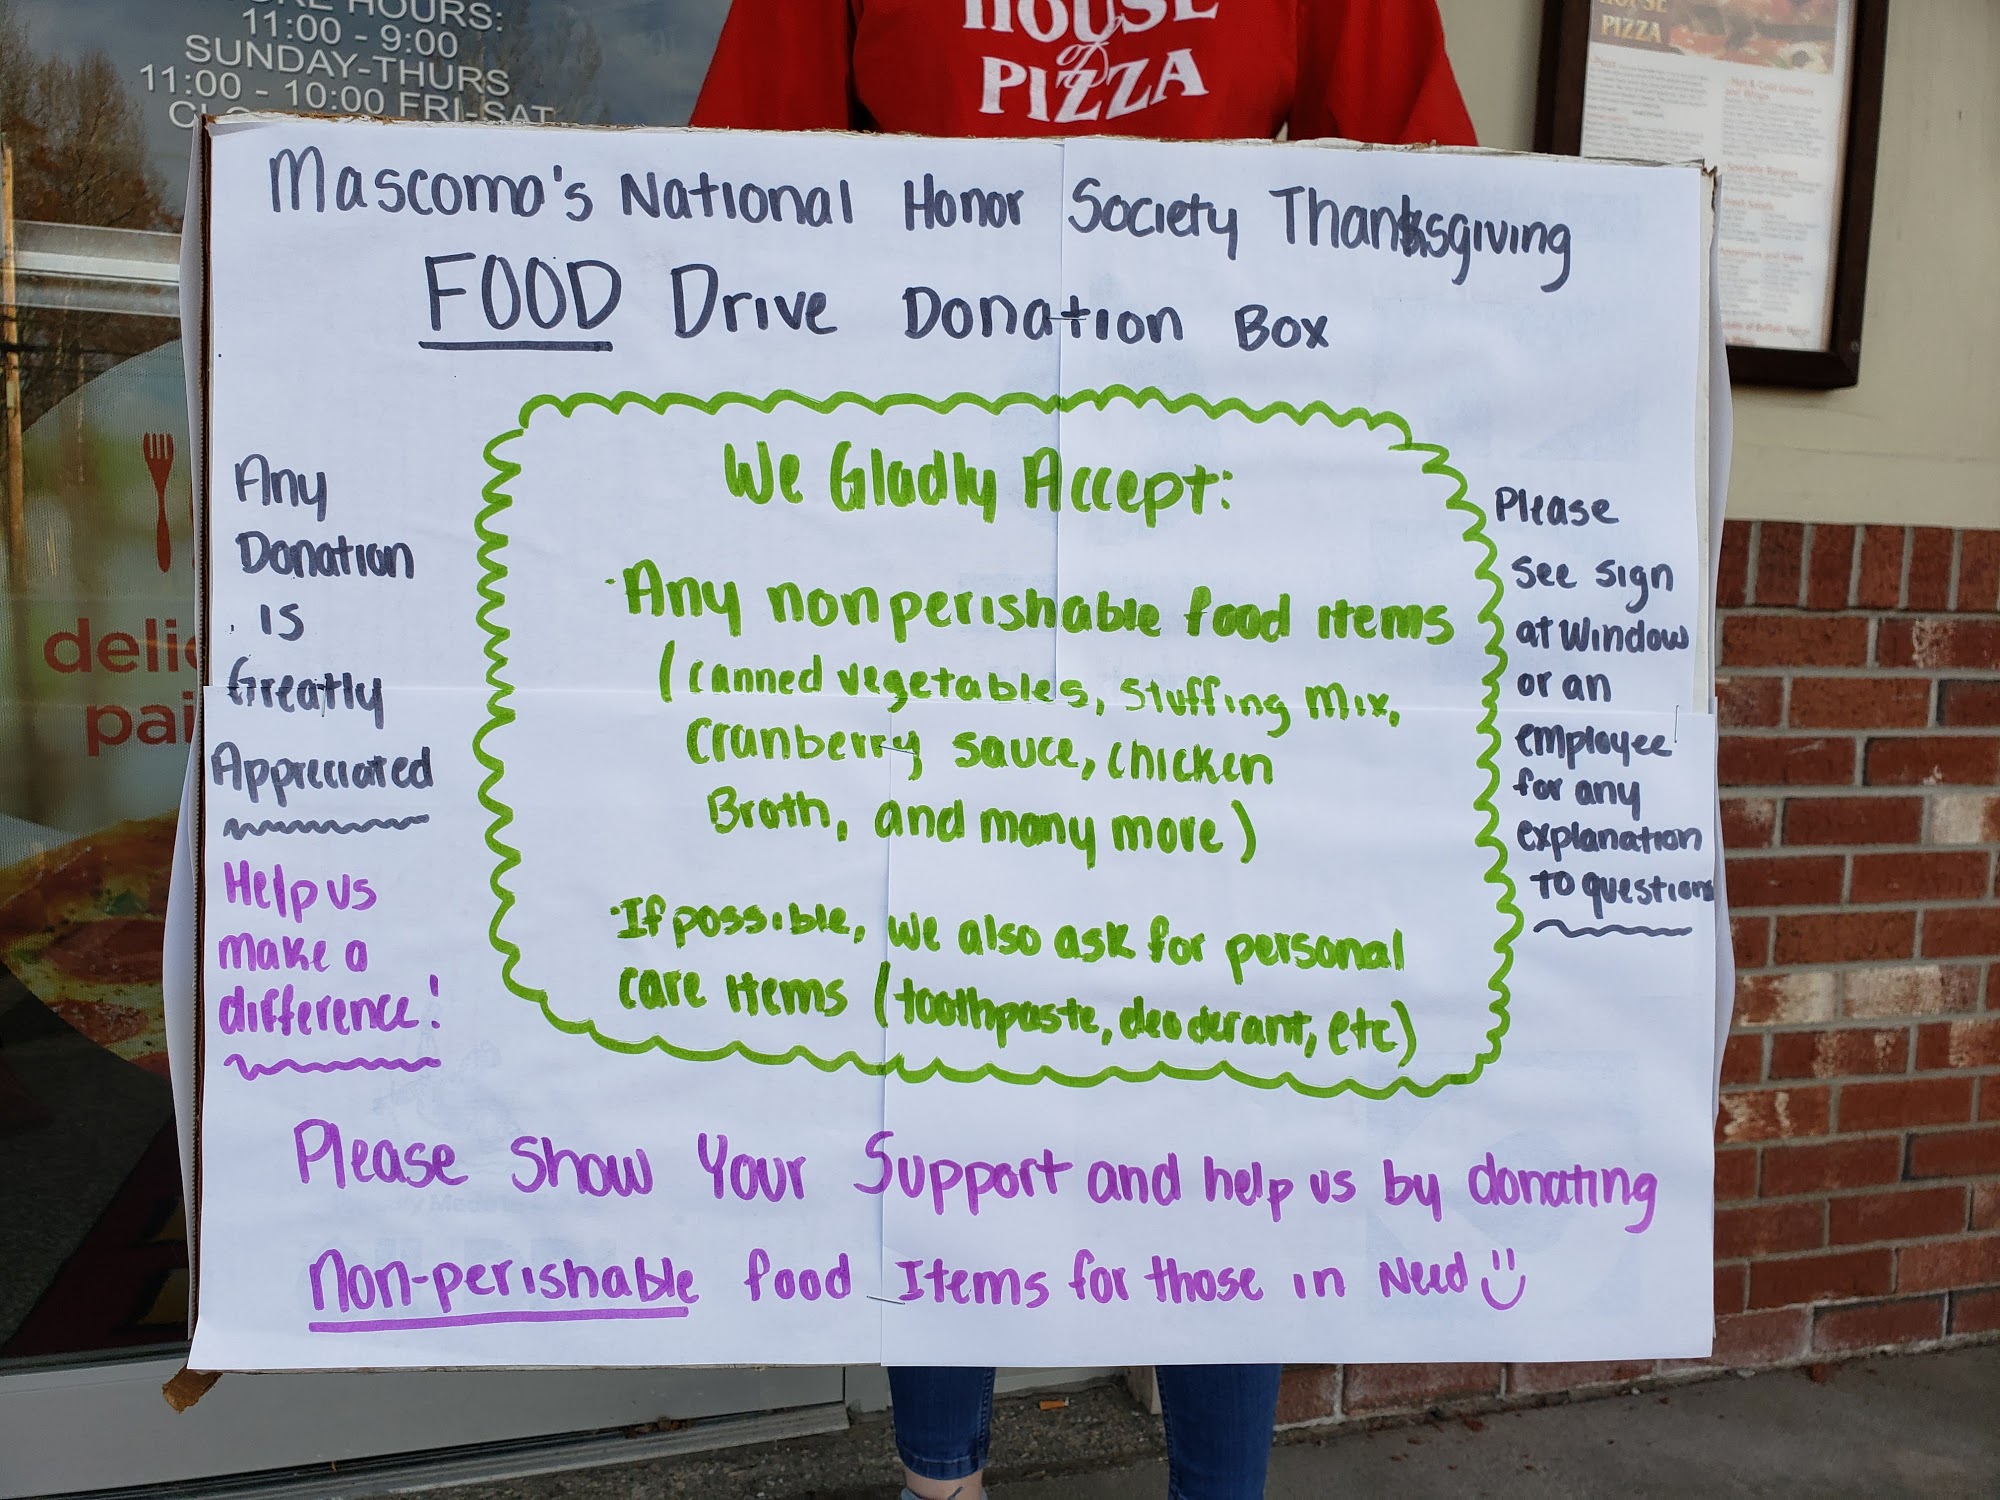 HOURS:
11:00 - 9:00
SUNDAY-THURS
11:00 - 10:00 FRI-SAT
HOUSE
of
PIZZA
PIZZA
Mascoma's National Honor Society Thanksgiving
FOOD Drive Donation Box
Any
Donation
is
Greatly
Appreciated
Help us
make a
difference!
We Gladly Accept:
·Any nonperishable food items
(canned vegetables, stuffing mix,
Cranberry sauce, chicken
Broth, and many more)
·If possible, we also ask for personal
care items (toothpaste, deoderant, etc)
Please
see sign
at Window
or an
employee
for any
explanation
to questions
Please Show Your Support and help us by donating
Non-perishable food Items for those in Need